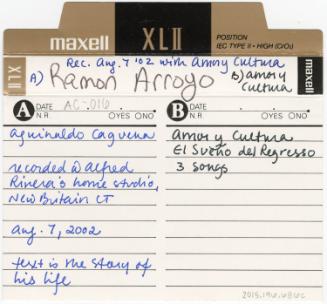 maxell XLII POSITION
IEC TYPE II • HIGH (CrO2)
Rec. Aug. 7 '02 with Amor y Cultura
XLII A) Ramon Arroyo B) amor y Cultura maxell
A DATE AC-016
N.R. YES NO
B DATE
N.R. YES NO
aguinaldo Cagueña
recorded @ Alfred
Rivera's home studio,
New Britain CT
aug. 7, 2002
text is the story of
his life
Amor y Cultura
El Sueño del Regresso
3 songs
2015.196.